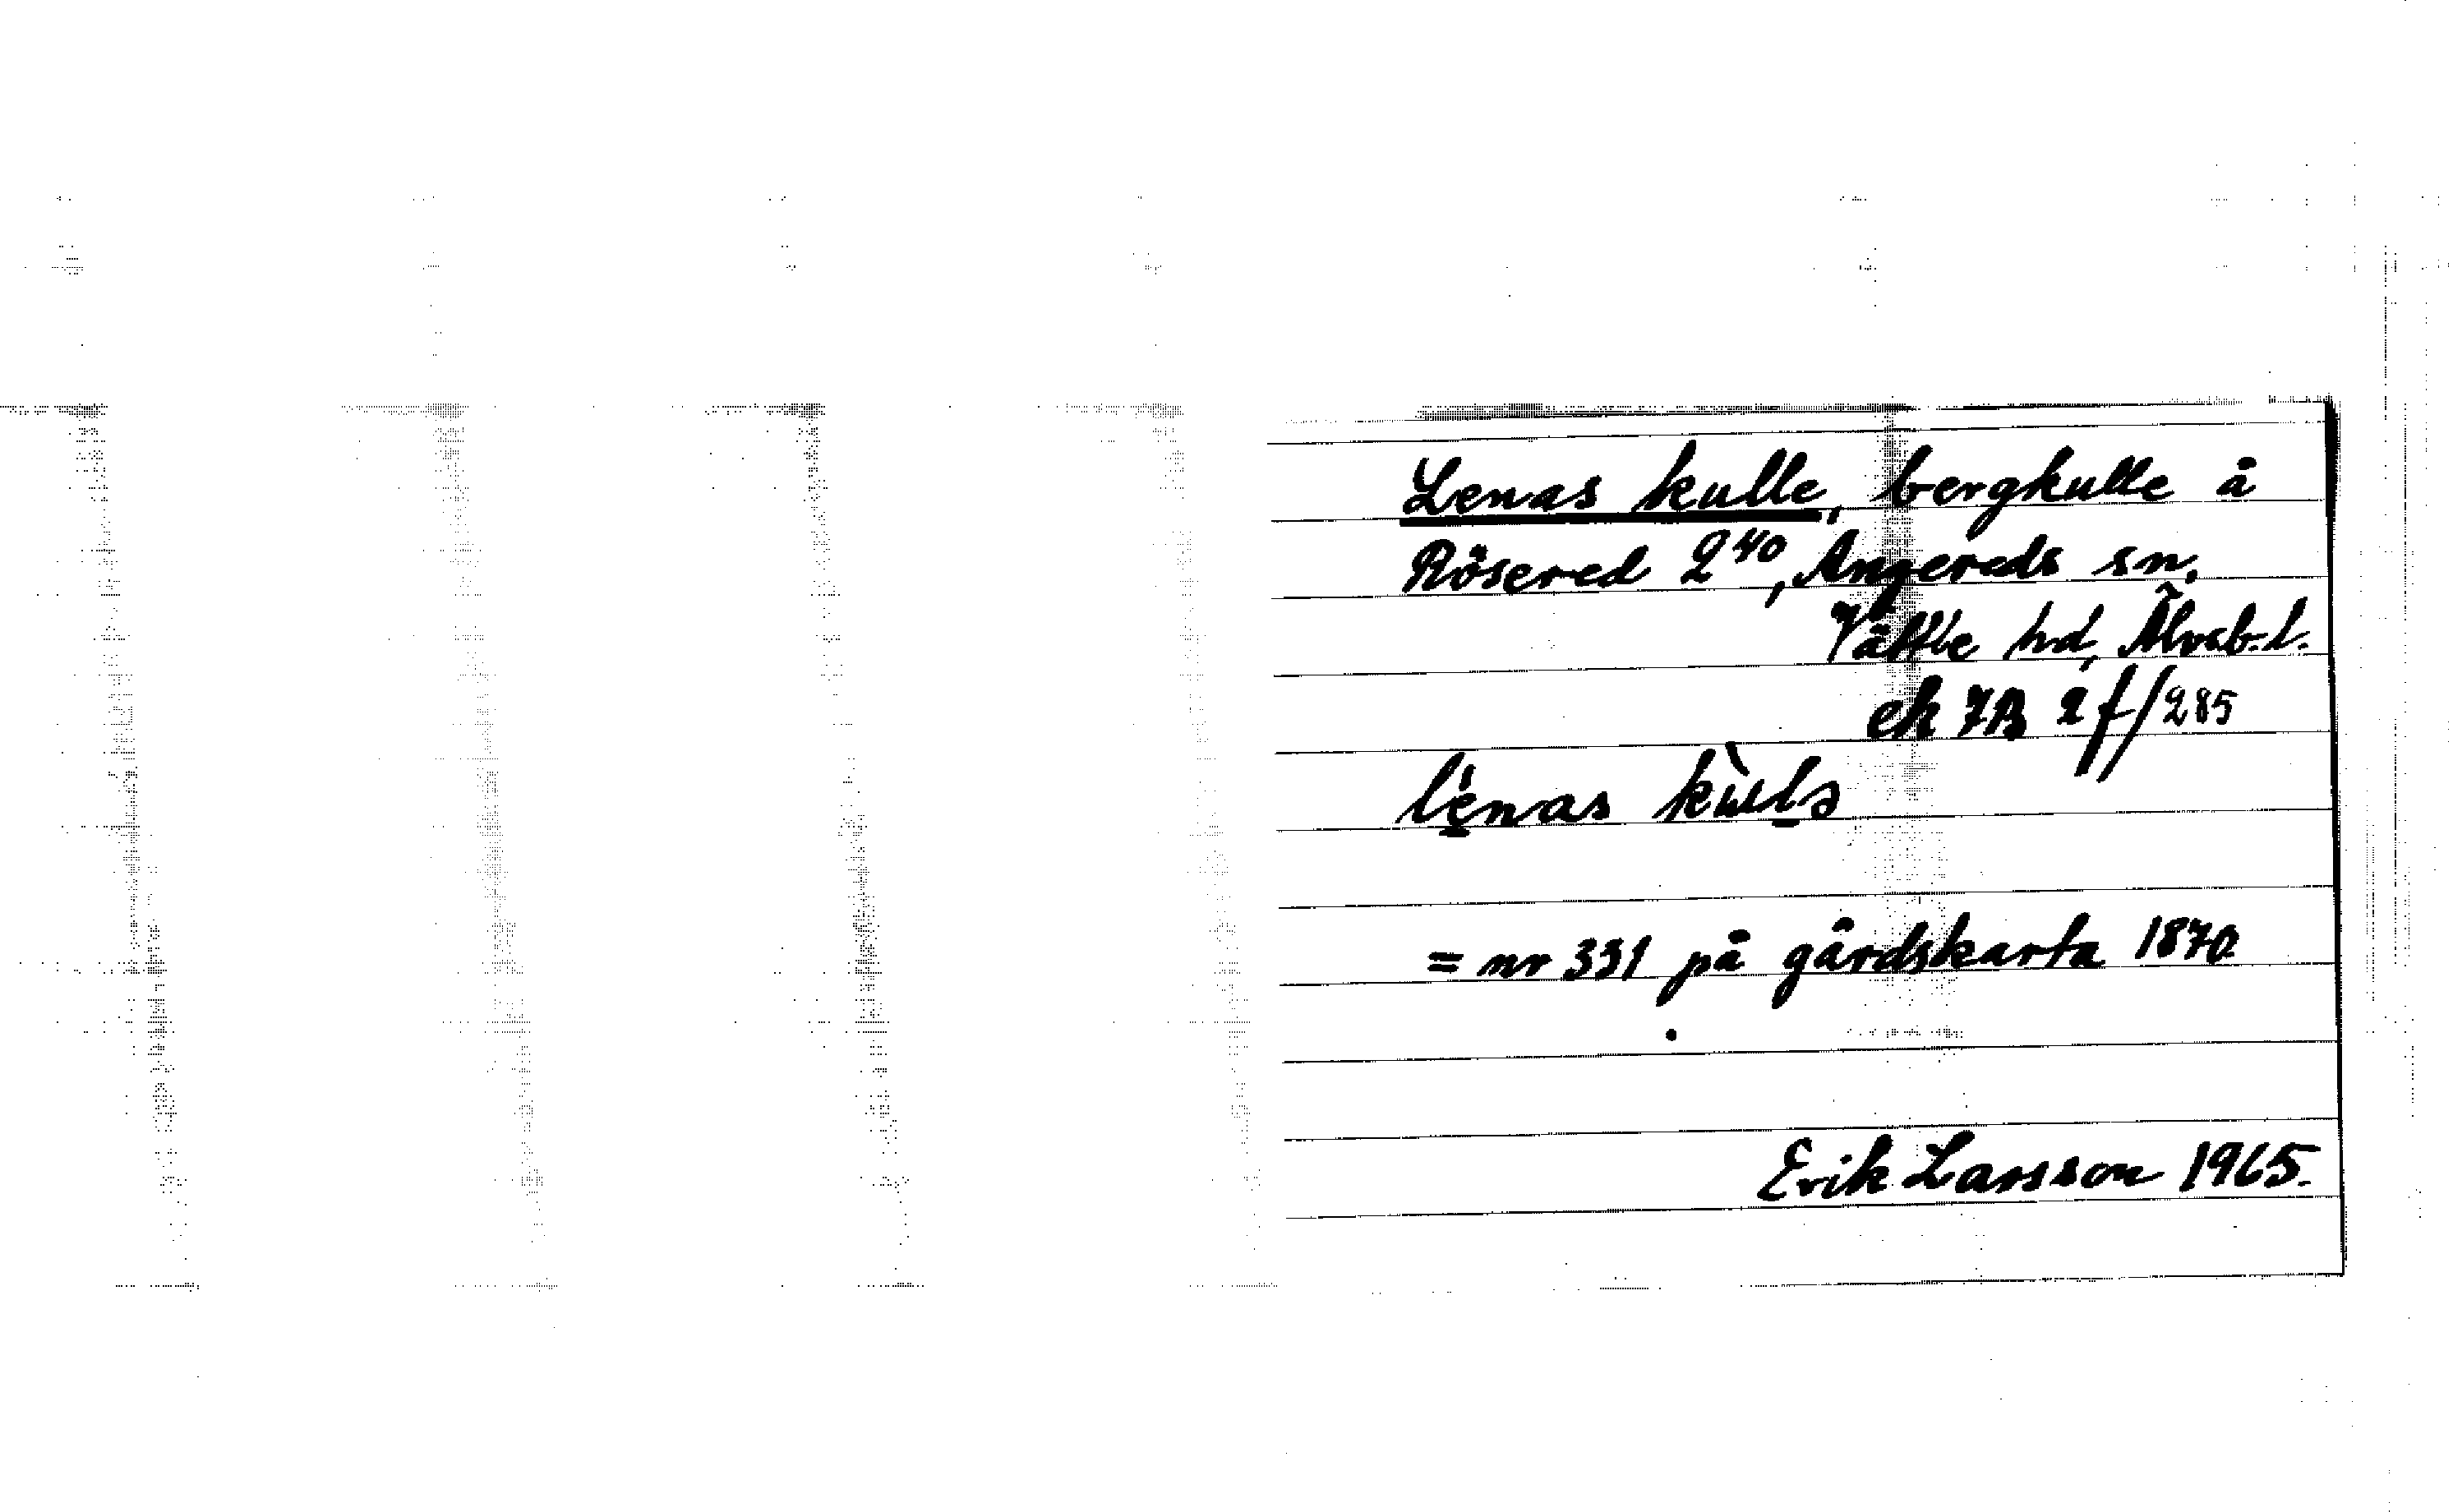 Lenas kulle, bergkulle å
Rösered 2⁴⁰, Angereds sn,
Vättle hd, Älvsb. l.
ek 7B 2 f/285
= nr 331 på gårdskarta 1870
Erik Larsson 1965.